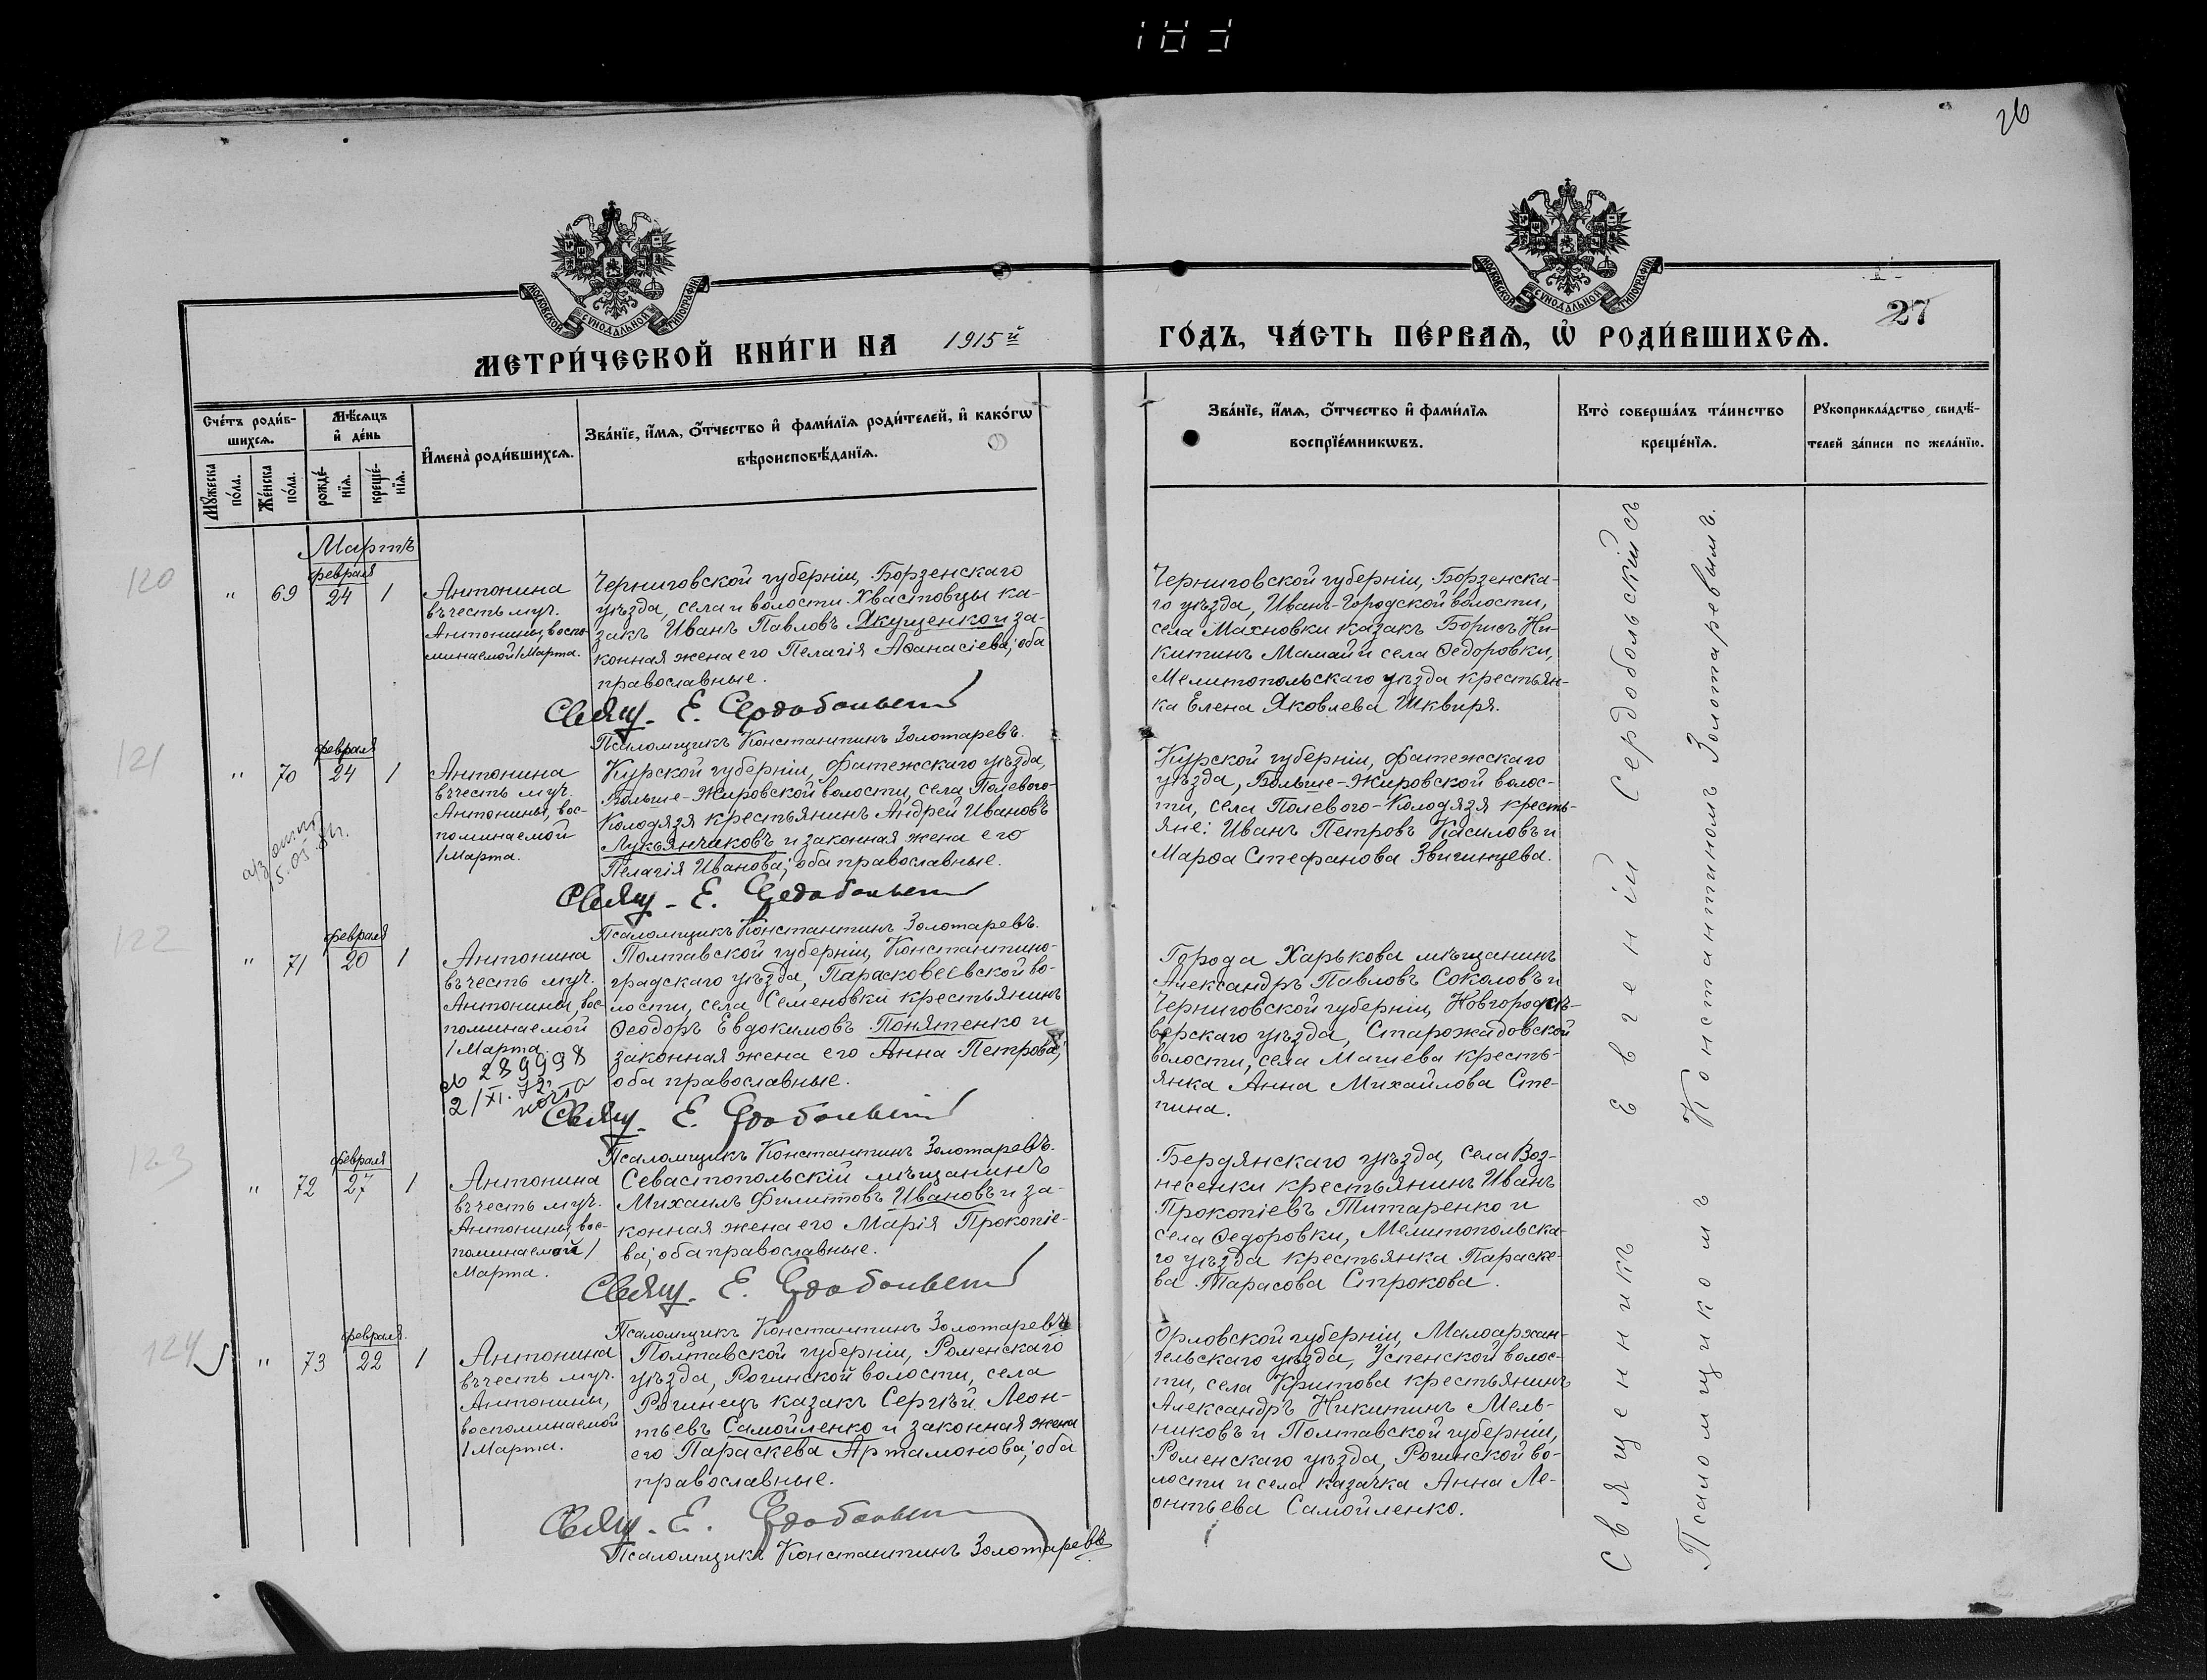 26
МОСКОВСКОЙ СѴНОДАЛЬНОЙ ТИПОГРАФІИ
МОСКОВСКОЙ СѴНОДАЛЬНОЙ ТИПОГРАФІИ
27
МЕТРИ́ЧЕСКОЙ КНИ́ГИ НА 1915й ГО́ДЪ, ЧА́СТЬ ПЕ́РВАѦ, Ѡ҆ РОДИ́ВШИХСѦ.
Сче́тъ роди́в-
шихсѧ.
Мꙋ́жеска по́ла.
Же́нска по́ла.
Мѣ́сѧцъ
и҆ де́нь
рожде́-
нїѧ.
креще́-
нїѧ.
И҆мена̀ роди́вшихсѧ.
Зва́нїе, и҆́мѧ, ѻ҆́тчество и҆ фами́лїѧ роди́телей, и҆ како́гѡ
вѣроисповѣ́данїѧ.
Зва́нїе, и҆́мѧ, ѻ҆́тчество и҆ фами́лїѧ
воспрїе́мникѡвъ.
Кто̀ соверша́лъ та́инство
креще́нїѧ.
Рꙋкоприкла́дство свидѣ́-
телей за́писи по жела́нїю.
Мартъ
120
" 69
февраля
24 1
Антонина
въ честь муч.
Антонины, воспо-
минаемой 1 Марта.
Черниговской губерніи, Борзенскаго
уѣзда, села и волости Хвастовцы ка-
закъ Иванъ Павловъ Якущенко и за-
конная жена его Пелагія Аѳанасіева; оба
православные.
Свящ. Е. Сердобольскій
Псаломщикъ Константинъ Золотаревъ.
Черниговской губерніи, Борзенска-
го уѣзда, Иванъ-Городской волости,
села Махновки казакъ Борисъ Ни-
китинъ Мамай и села Ѳедоровки,
Мелитопольскаго уѣзда крестьян-
ка Елена Яковлева Шквиря.
121
" 70
февраля
24 1
Антонина
въ честь муч.
Антонины, вос-
поминаемой
1 Марта.
Курской губерніи, Фатежскаго уѣзда,
Больше-Жировской волости, села Полевого-
Колодязя крестьянинъ Андрей Ивановъ
Лукьянчиковъ и законная жена его
Пелагія Иванова; оба православные.
Свящ. Е. Сердобольскій
Псаломщикъ Константинъ Золотаревъ.
Курской губерніи, Фатежскаго
уѣзда, Больше-Жировской волос-
ти, села Полевого-Колодязя кресть-
яне: Иванъ Петровъ Касиловъ и
Марѳа Стефанова Звигинцева.
122
" 71
февраля
20 1
Антонина
въ честь муч.
Антонины, вос-
поминаемой
1 Марта.
289998
21/XI.72г
Полтавской губерніи, Константино-
градскаго уѣзда, Парасковеевской во-
лости, села Семеновки крестьянинъ
Ѳеодоръ Евдокимовъ Понятенко и
законная жена его Анна Петрова;
оба православные.
Свящ. Е. Сердобольскій
Псаломщикъ Константинъ Золотаревъ.
Города Харькова мѣщанинъ
Александръ Павловъ Соколовъ и
Черниговской губерніи, Новгородсѣ-
верскаго уѣзда, Старожадовской
волости, села Машева кресть-
янка Анна Михайлова Сте-
пина.
123
" 72
февраля
27 1
Антонина
въ честь муч.
Антонины, вос-
поминаемой 1
Марта.
Севастопольскій мѣщанинъ
Михаилъ Филиповъ Ивановъ и за-
конная жена его Марія Прокопіе-
ва; оба православные.
Свящ. Е. Сердобольскій
Псаломщикъ Константинъ Золотаревъ
Бердянскаго уѣзда, села Воз-
несенки крестьянинъ Иванъ
Прокопіевъ Титаренко и
села Ѳедоровки, Мелитопольска-
го уѣзда крестьянка Параске-
ва Тарасова Строкова.
124
" 73
февраля.
22 1
Антонина
въ честь муч.
Антонины,
воспоминаемой
1 Марта.
Полтавской губерніи, Роменскаго
уѣзда, Рогинской волости, села
Рогинецъ казакъ Сергѣй Леон-
тьевъ Самойленко и законная жена
его Параскева Артамонова; оба
православные.
Свящ. Е. Сердобольскій
Псаломщикъ Константинъ Золотаревъ
Орловской губерніи, Малоархан-
гельскаго уѣзда, Успенской волос-
ти, села Критова крестьянинъ
Александръ Никитинъ Мель-
никовъ и Полтавской губерніи,
Роменскаго уѣзда, Рогинской во-
лости и села казачка Анна Ле-
онтьева Самойленко.
Священникъ Евгеній Сердобольскій съ
Псаломщикомъ Константиномъ Золотаревымъ.